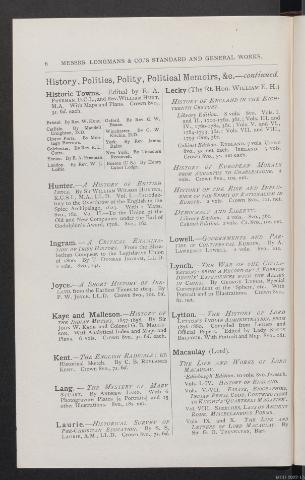 6 MESSRS. LONGMANS & CO.'S STANDARD AND GENERAL WORKS.
History, Politics, Polity, Political Memoirs, &c.—continued.
Historic Towns. Edited by E. A.
FREEMAN, D.C.L., and Rev. WILLIAM HUNT,
M.A. With Maps and Plans. Crown 8vo.,
3s. 6d. each.
Bristol. By Rev. W. Hunt.
Carlisle. By Mandell
Creighton, D.D.
Cinque Ports. By
Burrows.
Colchester. By Rev. E. L.
Cutts.
Exeter. By E. A. Freeman.
London. By Rev. W. J.
Loftie.
Oxford. By Rev. C. W.
Boase.
Winchester. By G. W.
Kitchin, D.D.
York. By Rev. James
Raine.
New York. By Theodore
Roosevelt.
Boston (U.S.) By Henry
Cabot Lodge.
Hunter.—A HISTORY OF BRITISH
INDIA. By Sir WILLIAM WILSON HUNTER,
K.C.S.I., M.A., LL.D. Vol. I.—
to the Overthrow of the English in the
Spice Archipelago, 1623. With 4 Maps.
8vo., 18s. Vol. II.—To the Union of the
Old and New Companies under the Earl of
Godolphin's Award, 1708. 8vo., 16s.
Ingram.—A CRITICAL EXAMINATION
OF IRISH HISTORY. From the Elizabethan
Conquest to the Legislative Union
of 1800. By T. DUNBAR INGRAM, LL.D.
2 vols. 8vo., 24s.
Joyce.—A SHORT HISTORY OF IRELAND,
from the Earliest Times to 1603. By
P. W. JOYCE, LL.D. Crown 8vo., 10s. 6d.
Kaye and Malleson.—HISTORY OF
THE INDIAN MUTINY, 1857-1858. By Sir
JOHN W. KAYE and Colonel G. B. MALLESON.
With Analytical Index and Maps and
Plans. 6 vols. Crown 8vo., 3s. 6d. each.
Kent.—THE ENGLISH RADICALS: an
Historical Sketch. By C. B. ROYLANCE
KENT. Crown 8vo., 7s. 6d.
Lang.—THE MYSTERY OF MARY
STUART. By ANDREW LANG. With 6
Photogravure Plates (4 Portraits) and 15
other Illustrations. 8vo., 18s. net.
Laurie.—HISTORICAL SURVEY OF
PRE-CHRISTIAN EDUCATION. By S. S.
LAURIE, A.M., LL.D. Crown 8vo., 7s. 6d.
Lecky (The Rt. Hon. WILLIAM E. H.)
HISTORY OF ENGLAND IN THE EIGHTEENTH
CENTURY.
Library Edition. 8 vols. 8vo. Vols. I.
and II., 1700-1760, 36s.; Vols. III. and
IV., 1760-1784, 36s.; Vols. V. and VI.,
1784-1793, 36s.; Vols. VII. and VIII.,
1793-1800, 36s.
Cabinet Edition. ENGLAND. 7 vols. Crown
8vo., 5s. net each. IRELAND. 5 vols.
Crown 8vo., 5s. net each.
HISTORY OF EUROPEAN MORALS
FROM AUGUSTUS TO CHARLEMAGNE. 2
vols. Crown 8vo., 10s. net.
HISTORY OF THE RISE AND INFLUENCE
OF THE SPIRIT OF RATIONALISM IN
EUROPE. 2 vols. Crown 8vo., 10s. net.
DEMOCRACY AND LIBERTY.
Library Edition. 2 vols. 8vo., 36s.
Cabinet Edition. 2 vols. Cr. 8vo., 10s. net.
Lowell.—GOVERNMENTS AND PARTIES
IN CONTINENTAL EUROPE. By A.
LAWRENCE LOWELL. 2 vols. 8vo., 21s.
Lynch.—THE WAR OF THE CIVILISATIONS:
BEING A RECORD OF A 'FOREIGN
DEVIL'S' EXPERIENCES WITH THE ALLIES
IN CHINA. By GEORGE LYNCH, Special
Correspondent of the 'Sphere,' etc. With
Portrait and 21 Illustrations. Crown 8vo.,
6s. net.
Lytton.—THE HISTORY OF LORD
LYTTON'S INDIAN ADMINISTRATION, FROM
1876-1880. Compiled from Letters and
Official Papers. Edited by Lady BETTY
BALFOUR. With Portrait and Map. 8vo., 18s.
Macaulay (Lord).
THE LIFE AND WORKS OF LORD
MACAULAY.
'Edinburgh' Edition. 10 vols. 8vo. 6s. each.
Vols. I.-IV. HISTORY OF ENGLAND.
Vols. V.-VII. ESSAYS, BIOGRAPHIES,
INDIAN PENAL CODE, CONTRIBUTIONS
TO KNIGHT'S 'QUARTERLY MAGAZINE'.
Vol. VIII. SPEECHES, LAYS OF ANCIENT
ROME, MISCELLANEOUS POEMS.
Vols. IX. and X. THE LIFE AND
LETTERS OF LORD MACAULAY. By
Sir G. O. TREVELYAN, Bart.